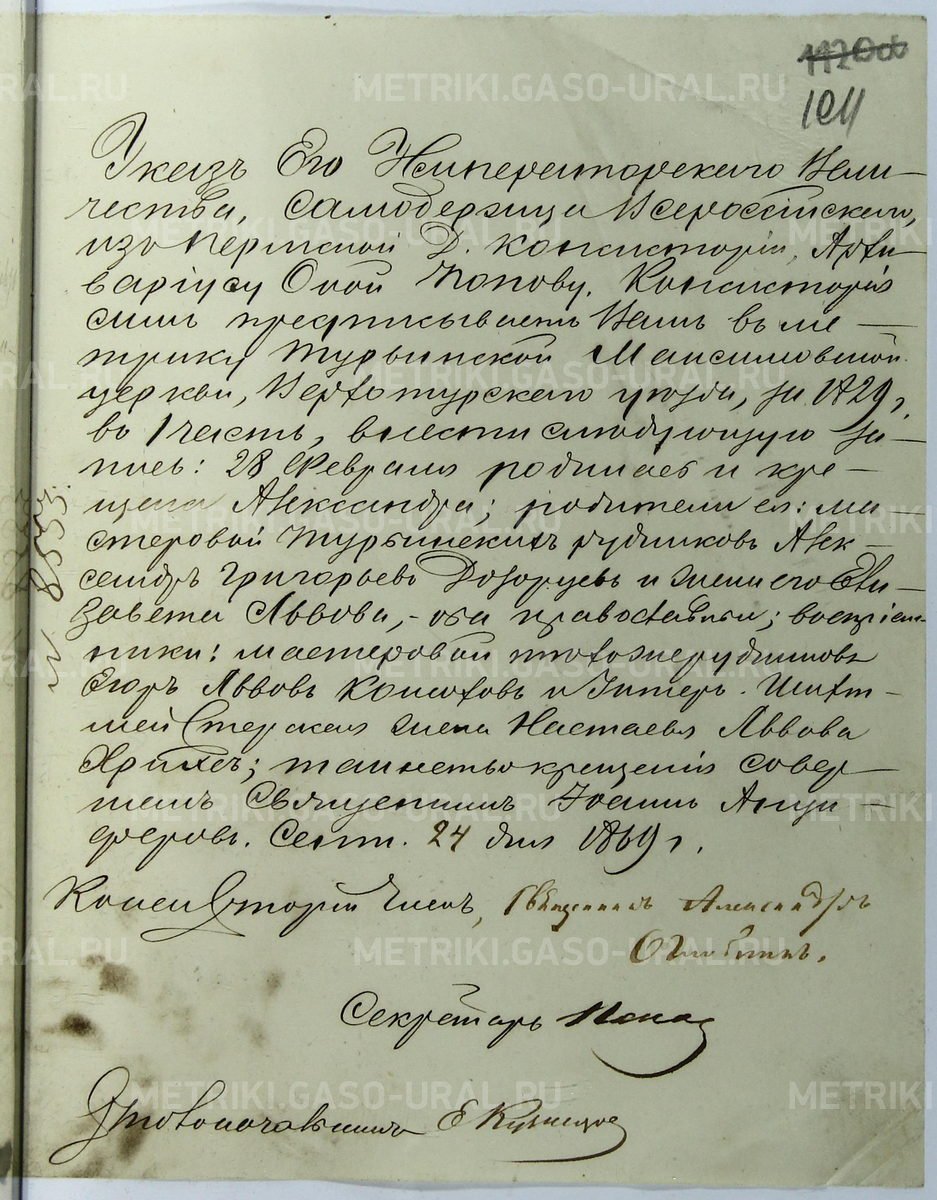 112об
1011
Указъ Его Императорскаго Вели-
чества, Самодержца Всероссійскаго,
изъ Пермской Д. Консисторіи, Архи-
варіусу Оной Попову. Консисторія
симъ предписываетъ Вамъ въ ме-
трику Турьинской Максимовской
церкви, Верхотурскаго уѣзда, за 1829 г.
въ 1 часть, внести слѣдующую за-
пись: 28 Февраля родилась и кре-
щена Александра; родители ея: ма-
стеровой Турьинскихъ рудниковъ Алек-
сандръ Григорьевъ Дозорцевъ и жена его Ели-
завета Львова, - оба православные; воспріем-
ники: мастеровой тѣхже рудниковъ
Егоръ Львовъ и Унтеръ. Шихт-
мейстерская жена Настасья Львова
таинство крещенія совер-
шалъ Священникъ Іоаннъ Анци-
феровъ. Сент. 24 дня 1869 г.
№ 8533.
Консисторіи Членъ, Священникъ Александръ
Секретарь Попов
Столоначальникъ Е Кузнецов
METRIKI.GASO-URAL.RU